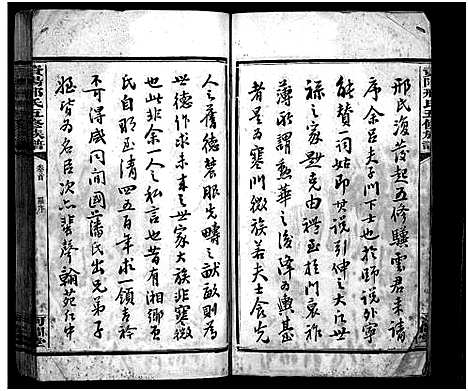 邢氏復發起五修驥雲君來請
序余呂夫子門下士也於師說外寧
能贊一詞姑即其說引伸之大江世
祿之家鮮克由禮王謝門衰祚
薄所謂勳華之後降為輿臺
者是為寒門微族若夫士食先
人之舊德農服先疇之畎畝則為
世德作求未來之世家大族非寒微
也此非余一人之私言也昔有湘鄉
氏自明迄清四五百年求一領青衿
不可得咸同間國藩氏出兄弟子
姪皆為名臣次亦蜚聲翰苑仁中
卷首